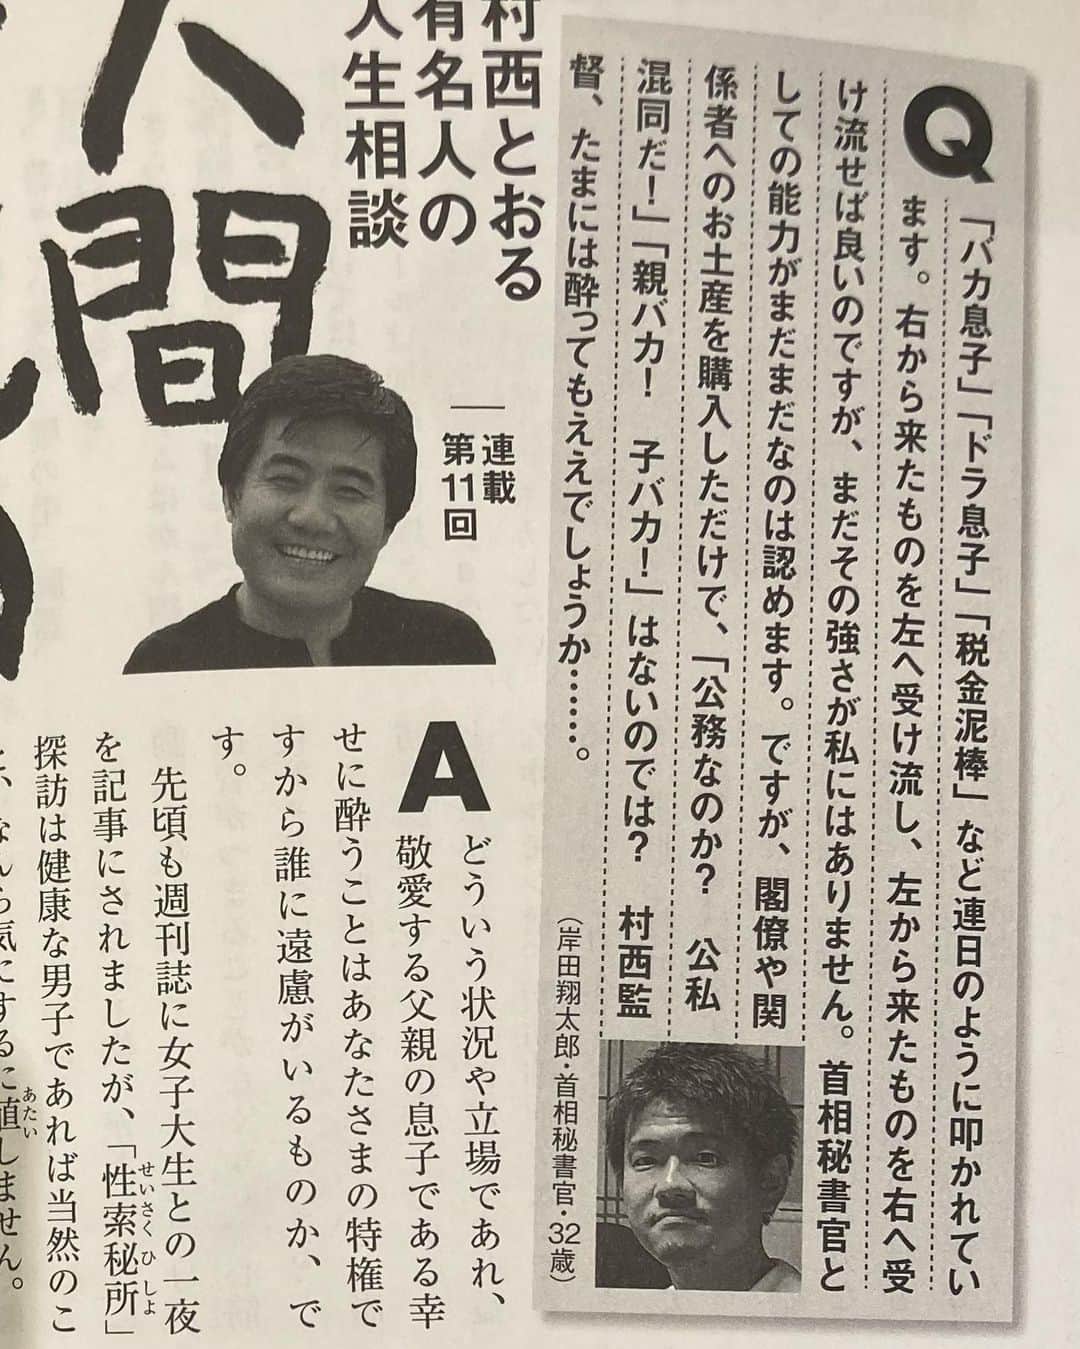 村西とおる
有名人の
人生相談
人間
連載
第11回
Q
「バカ息子」「ドラ息子」「税金泥棒」など連日のように叩かれてい
ます。右から来たものを左へ受け流し、左から来たものを右へ受
け流せば良いのですが、まだその強さが私にはありません。首相秘書官と
しての能力がまだまだなのは認めます。ですが、閣僚や関
係者へのお土産を購入しただけで、「公務なのか？　公私
混同だ！」「親バカ！　子バカ！」はないのでは？　村西監
督、たまには酔ってもええでしょうか……。
（岸田翔太郎・首相秘書官・32歳）
A
どういう状況や立場であれ、
敬愛する父親の息子である幸
せに酔うことはあなたさまの特権で
すから誰に遠慮がいるものか、で
す。
先頃も週刊誌に女子大生との一夜
を記事にされましたが、「性索秘所」
せいさくひしよ
探訪は健康な男子であれば当然のこ
と、なんら気にするに値しません。
あたい